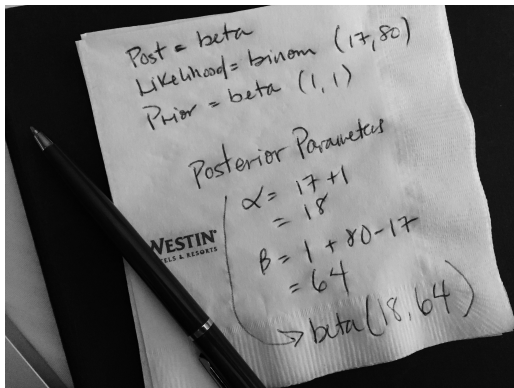 Post = beta
Likelihood = binom (17,80)
Prior = beta (1,1)
Posterior Parameters
α = 17 +1
= 18
β = 1 + 80-17
= 64
→ beta (18,64)
WESTIN
ELS & RESORTS